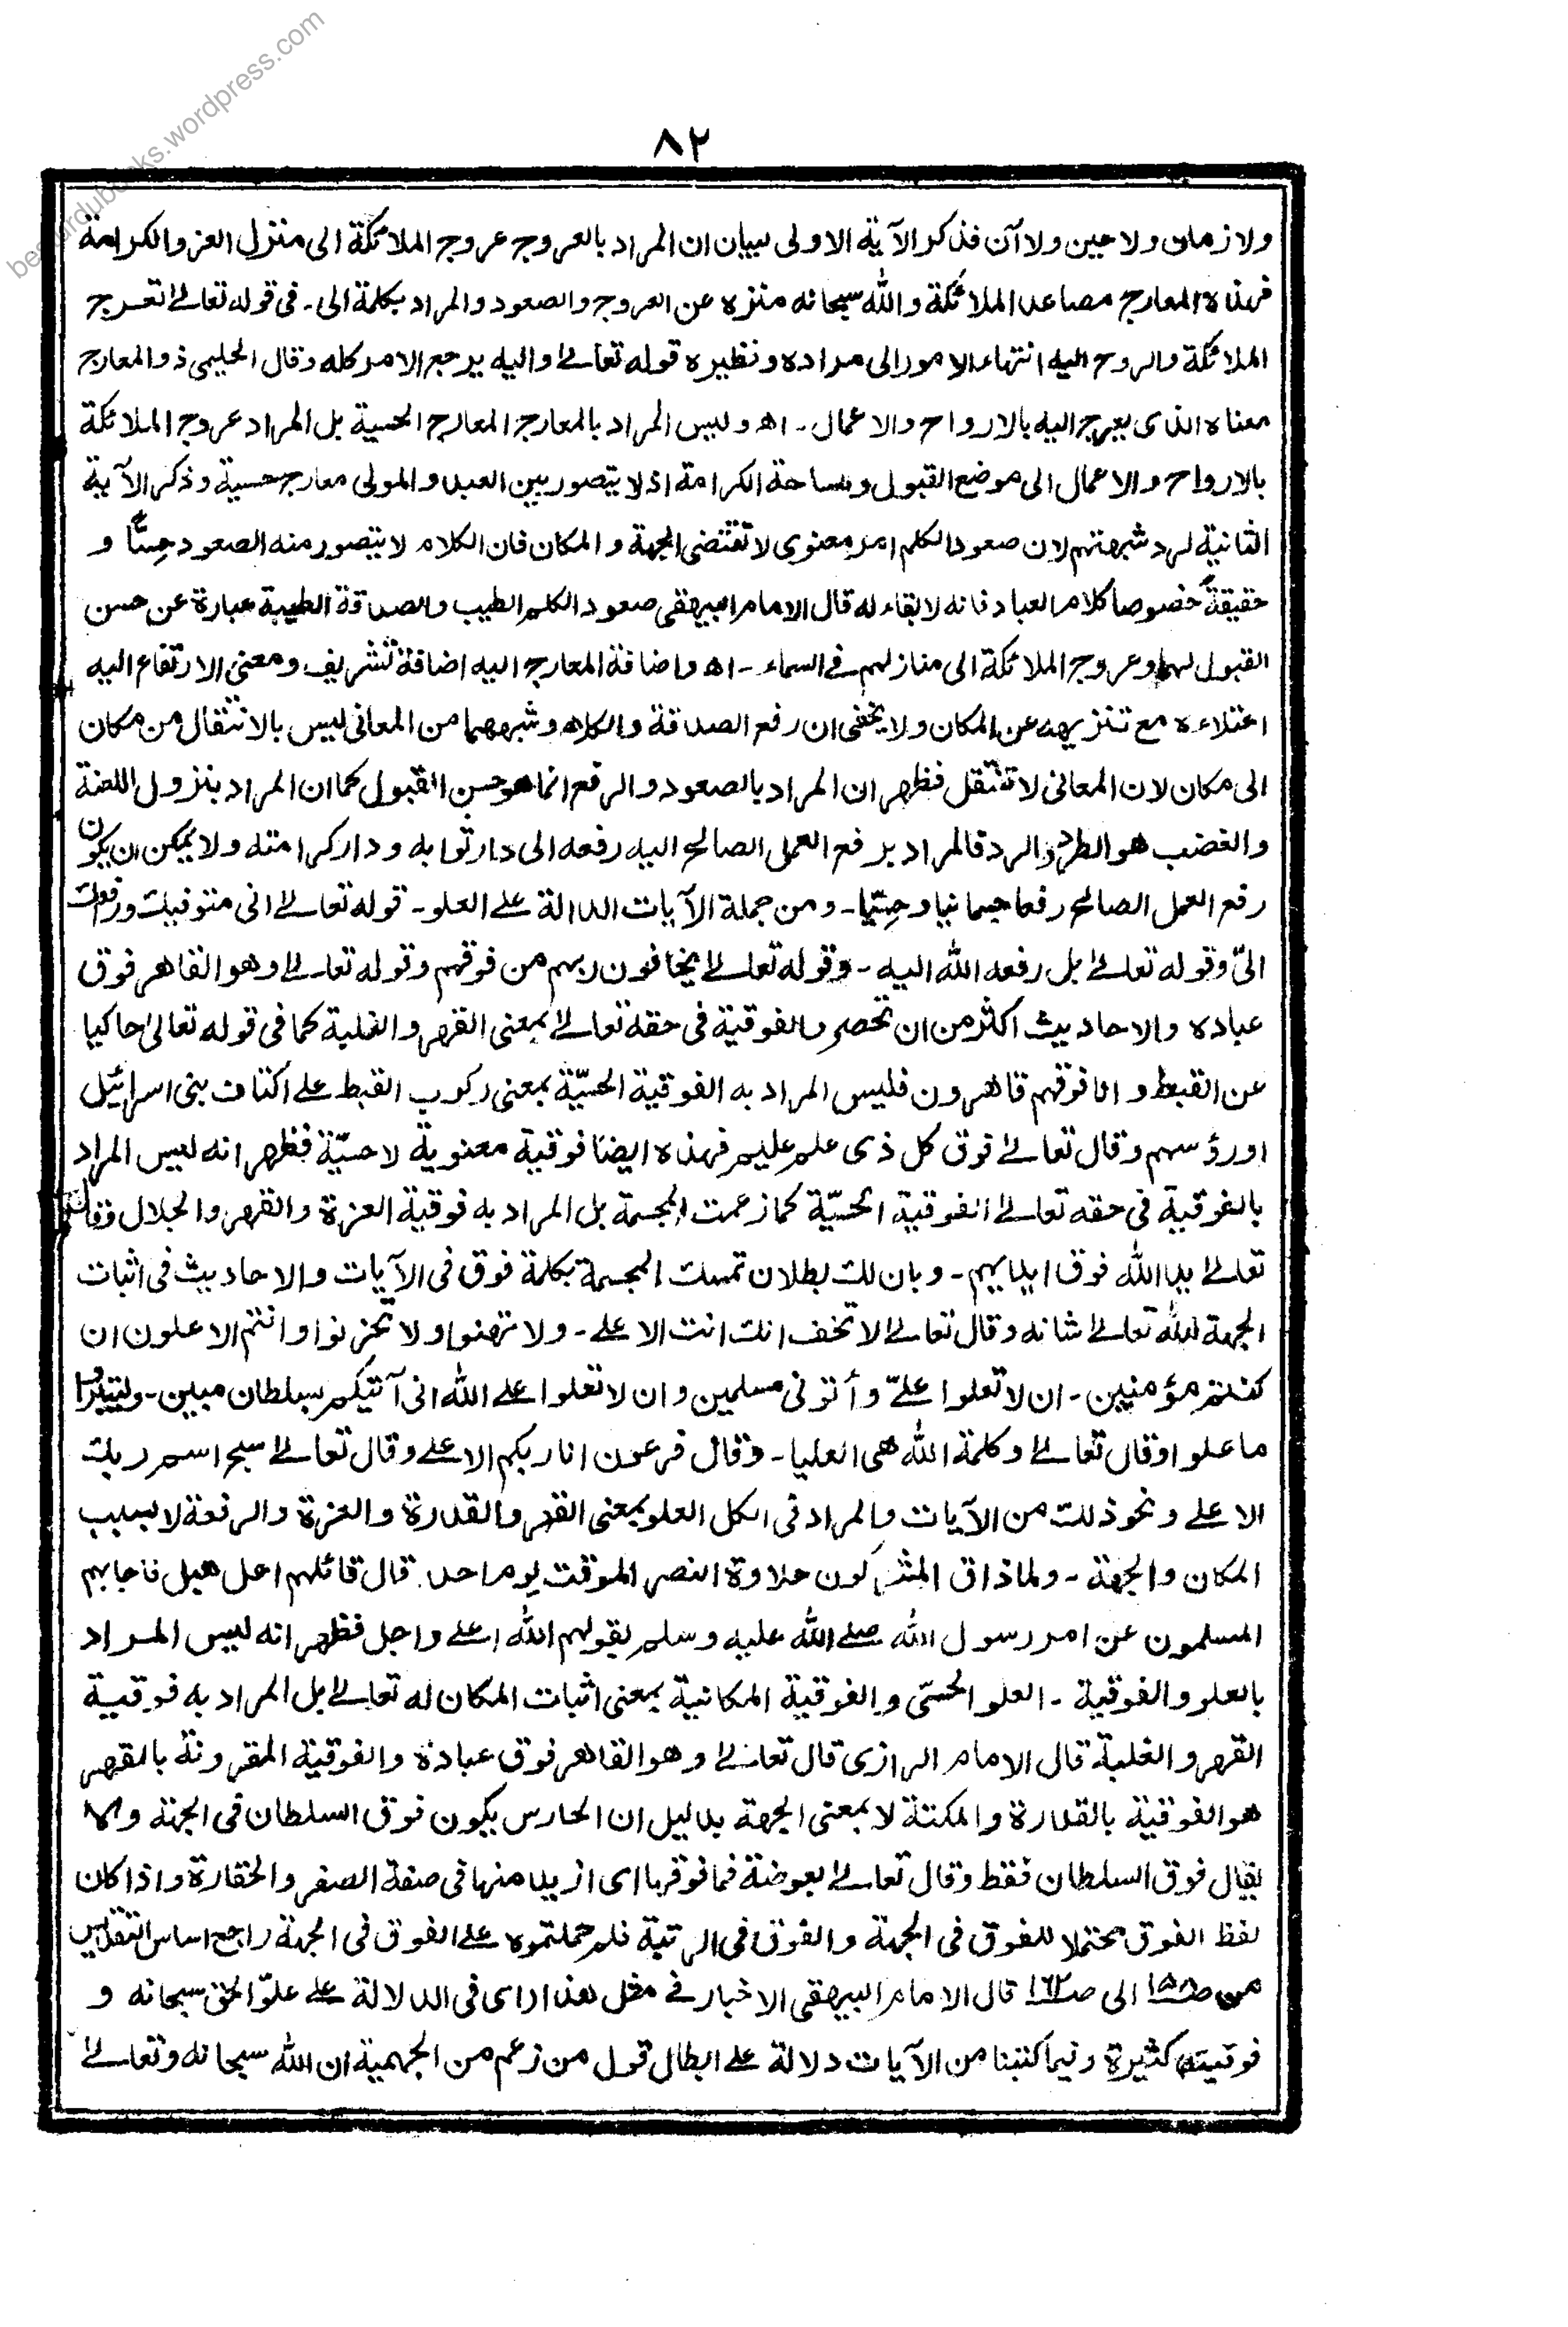 besturdubooks.wordpress.com
٨٢
ولا زمان ولا حين ولا آن فذكر الآية الاولى لبيان ان المراد بالعروج عروج الملائكة الى منزل العز والكرامة
فهذه المعارج مصاعد الملائكة والله سبحانه منزه عن العروج والصعود والمراد بكلمة الى ـ فى قوله تعالى تعرج
الملائكة والروح اليه انتهاء الامور الى مراده ونظيره قوله تعالى واليه يرجع الامر كله وقال الحليمى ذو المعارج
معناه الذى يعرج اليه بالارواح والاعمال ـ اه وليس المراد بالمعارج المعارج الحسية بل المراد عروج الملائكة
بالارواح والاعمال الى موضع القبول وساحة الكرامة اذ لا يتصور بين العبد والمولى معارج حسية وذكر الآية
الثانية لرد شبهتهم لان صعود الكلم امر معنوى لا تقتضى الجهة والمكان فان الكلام لا يتصور منه الصعود حِسًّا و
حقيقةً خصوصا كلام العباد فانه لا بقاء له قال الامام البيهقى صعود الكلم الطيب والصدقة الطيبة عبارة عن حسن
القبول لهما وعروج الملائكة الى منازلهم فى السماء ـ اه واضافة المعارج اليه اضافة تشريف ومعنى الارتفاع اليه
اعتلاءه مع تنزيهه عن المكان ولا يخفى ان رفع الصدقة والكلام وشبههما من المعانى ليس بالانتقال من مكان
الى مكان لان المعانى لا تنتقل فظهر ان المراد بالصعود والرفع انما هو حسن القبول كما ان المراد بنزول اللعنة
والغضب هو الطرد والرد فالمراد برفع العمل الصالح اليه رفعه الى دار ثوابه ودار كرامته ولا يمكن ان يكون
رفع العمل الصالح رفعا جسمانيا وحِسّيا ـ ومن جملة الآيات الدالة على العلو ـ قوله تعالى انى متوفيك ورافعك
الىّ وقوله تعالى بل رفعه الله اليه ـ وقوله تعالى يخافون ربهم من فوقهم وقوله تعالى وهو القاهر فوق
عباده والاحاديث اكثر من ان تحصر والفوقية فى حقه تعالى بمعنى القهر والغلبة كما فى قوله تعالى حاكيا
عن القبط وانا فوقهم قاهرون فليس المراد به الفوقية الحسّيّة بمعنى ركوب القبط على اكتاف بنى اسرائيل
او رؤسهم وقال تعالى فوق كل ذى علم عليم فهذه ايضا فوقية معنوية لا حسّيّة فظهر انه ليس المراد
بالفوقية فى حقه تعالى الفوقية الحسّيّة كما زعمت المجسمة بل المراد به فوقية العزة والقهر والجلال وقال
تعالى يد الله فوق ايديهم ـ وبان لك بطلان تمسك المجسمة بكلمة فوق فى الآيات والاحاديث فى اثبات
الجهة لله تعالى شانه وقال تعالى لا تخف انك انت الاعلى ـ ولا تهنوا ولا تحزنوا وانتم الاعلون ان
كنتم مؤمنين ـ ان لا تعلوا علىّ وأتونى مسلمين وان لا تعلوا على الله انى آتيكم بسلطان مبين ـ وليتبروا
ما علوا وقال تعالى وكلمة الله هى العليا ـ وقال فرعون انا ربكم الاعلى وقال تعالى سبح اسم ربك
الاعلى ونحو ذلك من الآيات والمراد فى الكل العلو بمعنى القهر والقدرة والعزة والرفعة لا بسبب
المكان والجهة ـ ولما ذاق المشركون حلاوة النصر الموقت يوم احد قال قائلهم اعل هبل فاجابهم
المسلمون عن امر رسول الله صلى الله عليه وسلم بقولهم الله اعلى واجل فظهر انه ليس المراد
بالعلو والفوقية ـ العلو الحسّى والفوقية المكانية بمعنى اثبات المكان له تعالى بل المراد به فوقية
القهر والغلبة قال الامام الرازى قال تعالى وهو القاهر فوق عباده والفوقية المقرونة بالقهر
هو الفوقية بالقدرة والمكنة لا بمعنى الجهة بدليل ان الحارس يكون فوق السلطان فى الجهة ولا
يقال فوق السلطان فقط وقال تعالى بعوضة فما فوقها اى ازيد منها فى صفة الصغر والحقارة واذا كان
لفظ الفوق محتملا للفوق فى الجهة والفوق فى الرتبة فلم حملتموه على الفوق فى الجهة راجع اساس التقديس
من صـ١٥٨ الى صـ١٦٢ قال الامام البيهقى الاخبار فى مثل هذا اراى فى الدلالة على علوّ الحق سبحانه و
فوقيته كثيرة وفيما كتبنا من الآيات دلالة على ابطال قول من زعم من الجهمية ان الله سبحانه وتعالى